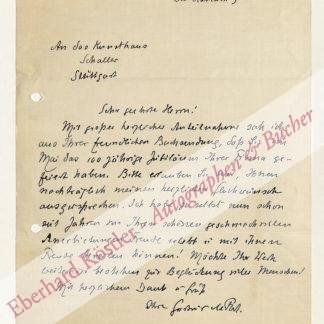 An das Kunsthaus
Schaller
Stuttgart
Sehr geehrte Herrn!
Mit großer herzlicher Anteilnahme sah ich
aus Ihrer freundlichen Buchsendung, daß Sie im
Mai das 100 jährige Jubiläum Ihrer Firma ge-
feiert haben. Bitte erlauben Sie mir, Ihnen
nachträglich meinen herzlichen Glückwunsch
auszusprechen. Ich habe selbst nun schon
seit Jahren an Ihren schönen geschmackvollen
Freude erlebt u. mit ihnen
Freude machen können! Möchte Ihr Werk
weiter bestehen zur Beglückung vieler Menschen!
Mit herzlichem Dank u. Gruß
Ihre
Eberhard Köstler - Autographen & Bücher